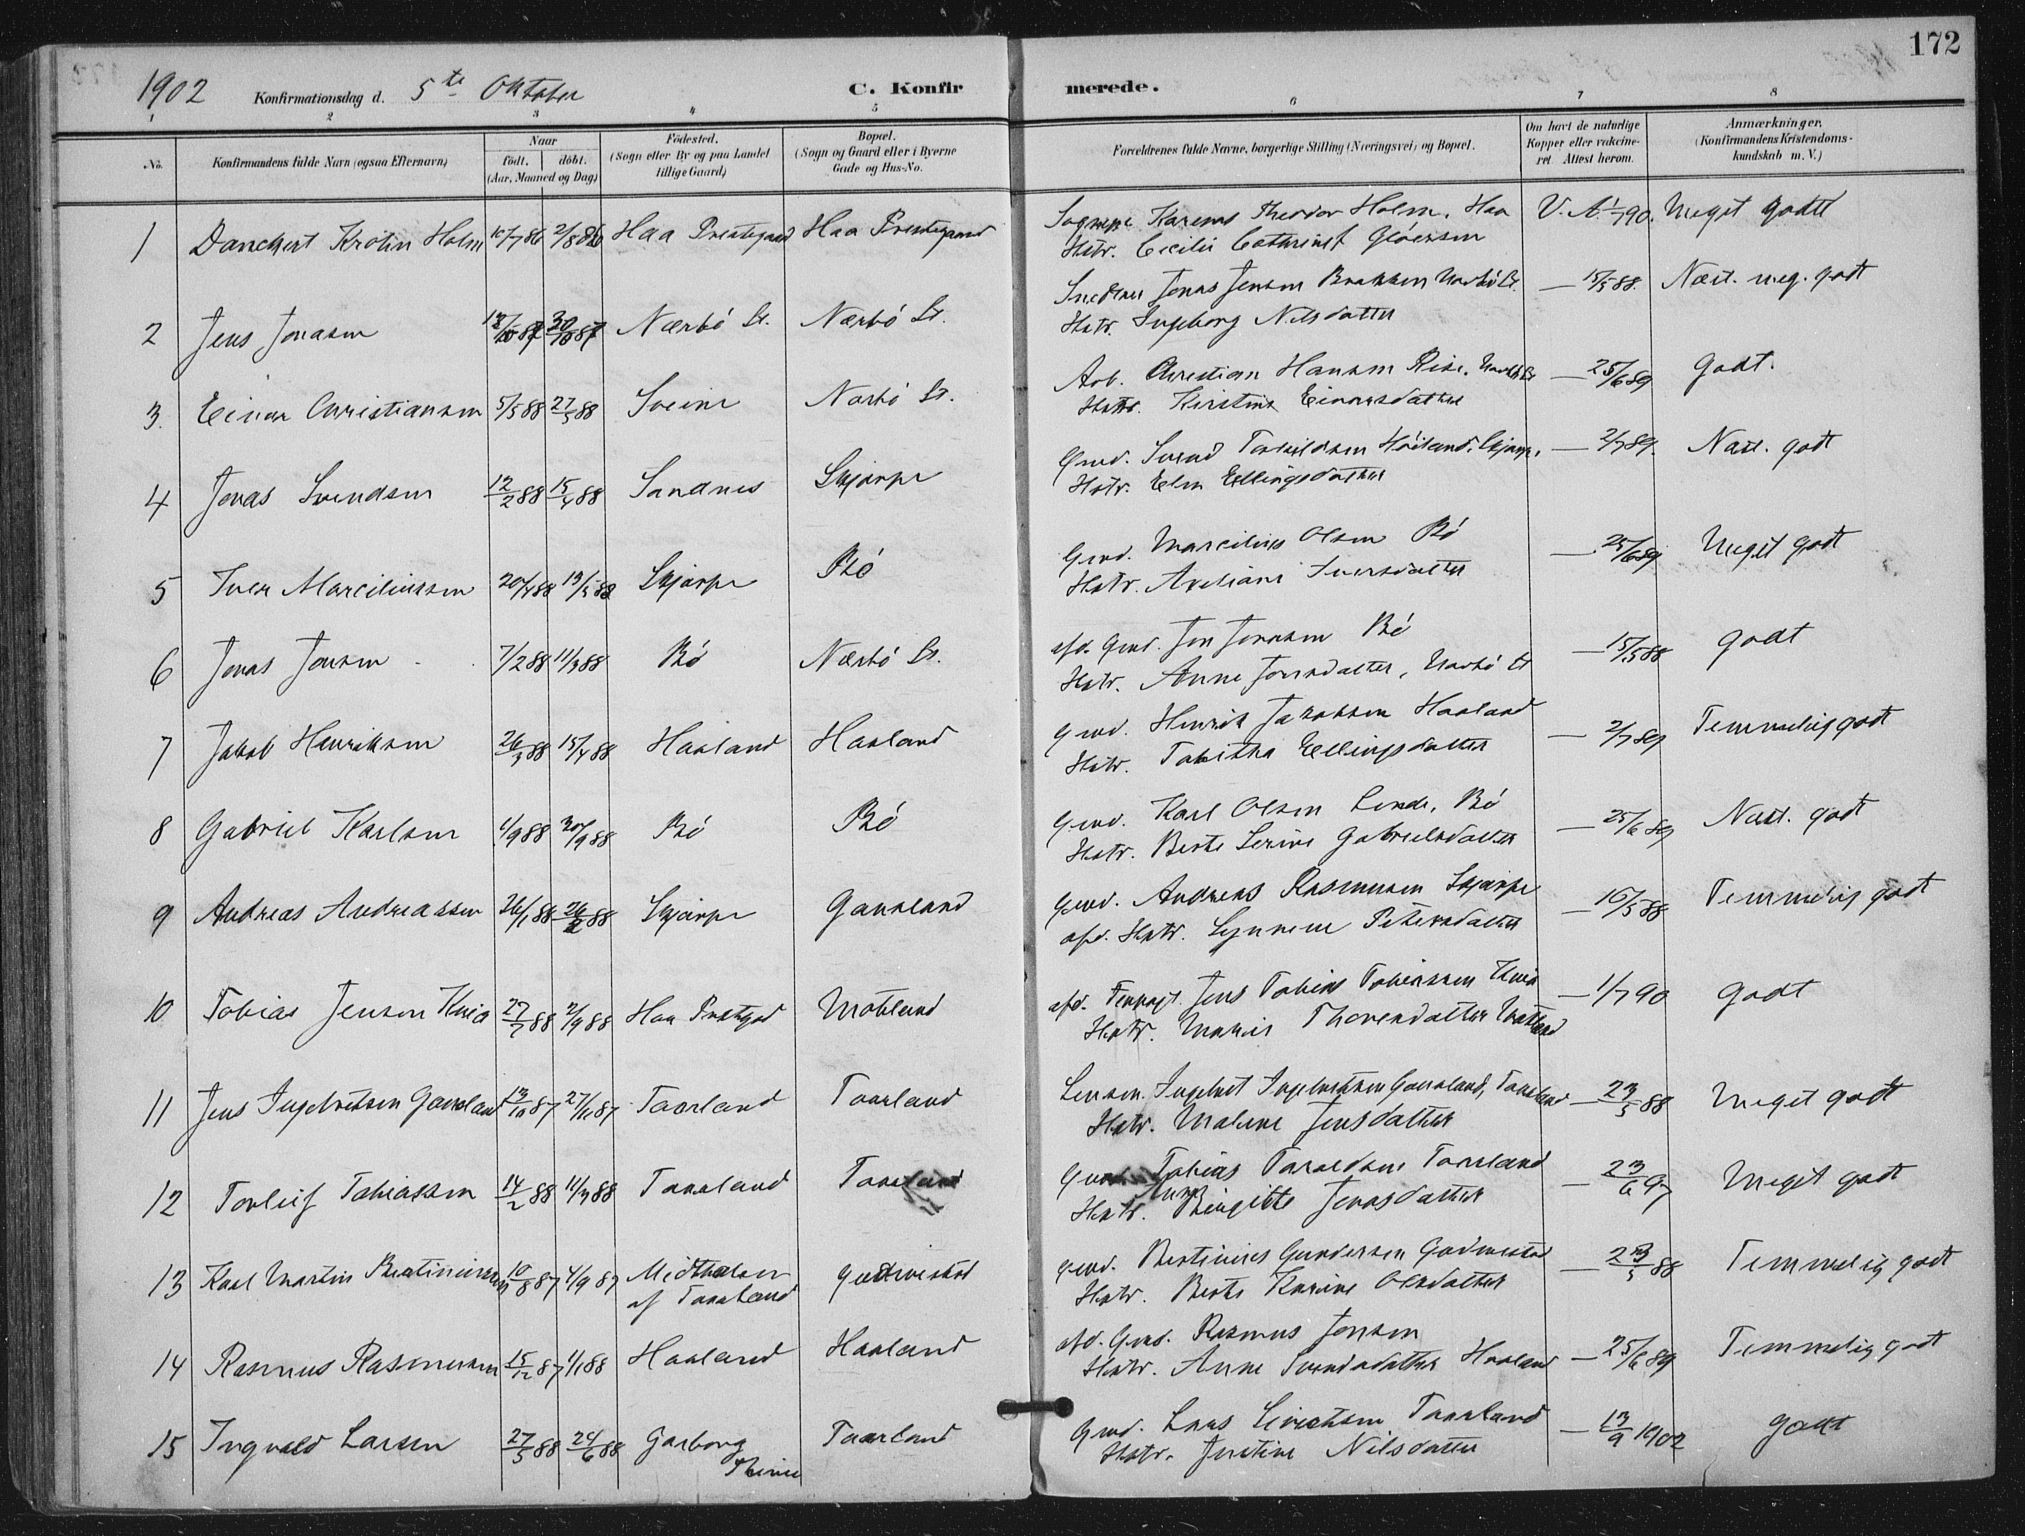 172
1902 Konfirmationsdag d. 5te Oktober C. Konfirmerede.
1 2 3 4 5 6 7 8
No. Konfirmandens fulde Navn (ogsaa Efternavn) Naar födt. döbt. (Aar, Maaned og Dag) Födested. (Sogn eller By og paa Landet tillige Gaard) Bopæl. (Sogn og Gaard eller i Byerne Gade og Hus-No. Forældrenes fulde Navne, borgerlige Stilling (Næringsvei) og Bopæl. Om havt de naturlige Kopper eller vakcineret. Attest herom. Anmærkninger. (Konfirmandens Kristendomskundskab m. V.)
1 Danckert Krohn Holm 10/7 86 2/8 86 Haa Prestegaard Haa Prestegaard Sognepr. Theodor Holm. Haa V. A. 1/7 90. Meget godt
Hstr. Cecilie Cathrine
2 Jens Jonasen 87 87 Nærbö St. Nærbö St. Jonas Jensen Nærbö St. — 15/5 88. Næst. meg. godt
Hstr. Ingeborg Nilsdatter
3. Einar Christiansen 5/5 88 27/5 88 Nærbö St. Arb. Christian Hansen Nærbö St. — 25/6 89 godt.
Hstr. Kirstine Einarsdatter
4 Jonas Svendsen 12/2 88 15/4 88 Sandnes Skjærpe Gmd. Svend Torkildsen Höiland, Skjærpe, — 2/7 89. Næst. godt
Hstr. Elen Ellingsdatter
5 Iver Marciliussen 20/4 88 13/5 88 Skjærpe Bö Gmd. Marcilius Olsen Bö — 25/6 89 Meget godt
Hstr. Iversdatter
6 Jonas Jonsen 7/2 88 11/3 88 Bö Nærbö St. afd. Gmd. Jon Jonassen Bö — 15/5 88 godt
Hstr. Anne Jonsdatter, Nærbö St
7 Jakob Henriksen 26/3 88 15/4 88 Haaland Haaland Gmd. Henrik Jakobsen Haaland — 2/7 89 Temmelig godt
Hstr. Tabitha Ellingsdatter
8 Gabriel Karlsen 4/9 88 30/9 88 Bö Bö Gmd. Karl Olsen Lende, Bö — 25/6 89 Næst. godt
Hstr. Berte Serine Gabrielsdatter
9 Andreas Andreassen 26/1 88 26/2 88 Skjærpe Gausland Gmd. Andreas Rasmussen Skjærpe — 16/5 88 Temmelig godt
afd. Hstr. Petersdatter
10 Tobias Jensen Kvia 27/7 88 2/9 88 Haa Prestgd Motland afd. Jens Tobias Tobiassen Kvia — 1/7 90 godt
Hstr. Marie Motland
11 Jens Ingebretsen Gausland 13/10 87 27/11 87 Taarland Taarland Ingebret Ingebretsen Gausland, Taarland — 23/5 88 Meget godt
Hstr. Malene Jensdatter
12 Torleif Tobiassen 14/2 88 11/3 88 Taarland Taarland Gmd. Tobias Taraldsen Taarland — 23/6 97 Meget godt
Hstr. Birgitte Jonasdatter
13 Karl Martin Bertiniussen 10/8 87 4/9 87 Gudmestad Gmd. Bertinius Gundersen Gudmestad — 23/5 88 Temmelig godt
af Taarland Hstr. Berte Karine Olsdatter
14 Rasmus Rasmussen 15/12 87 1/1 88 Haaland Haaland afd. Gmd. Rasmus Jonsen — 25/6 89 Temmelig godt
Hstr. Anne Svendsdatter Haaland
15 Ingvald Larsen 27/5 88 24/6 88 Garborg Taarland Gmd. Lars Taarland — 13/9 1902 godt
Thime Hstr. Justine Nilsdatter